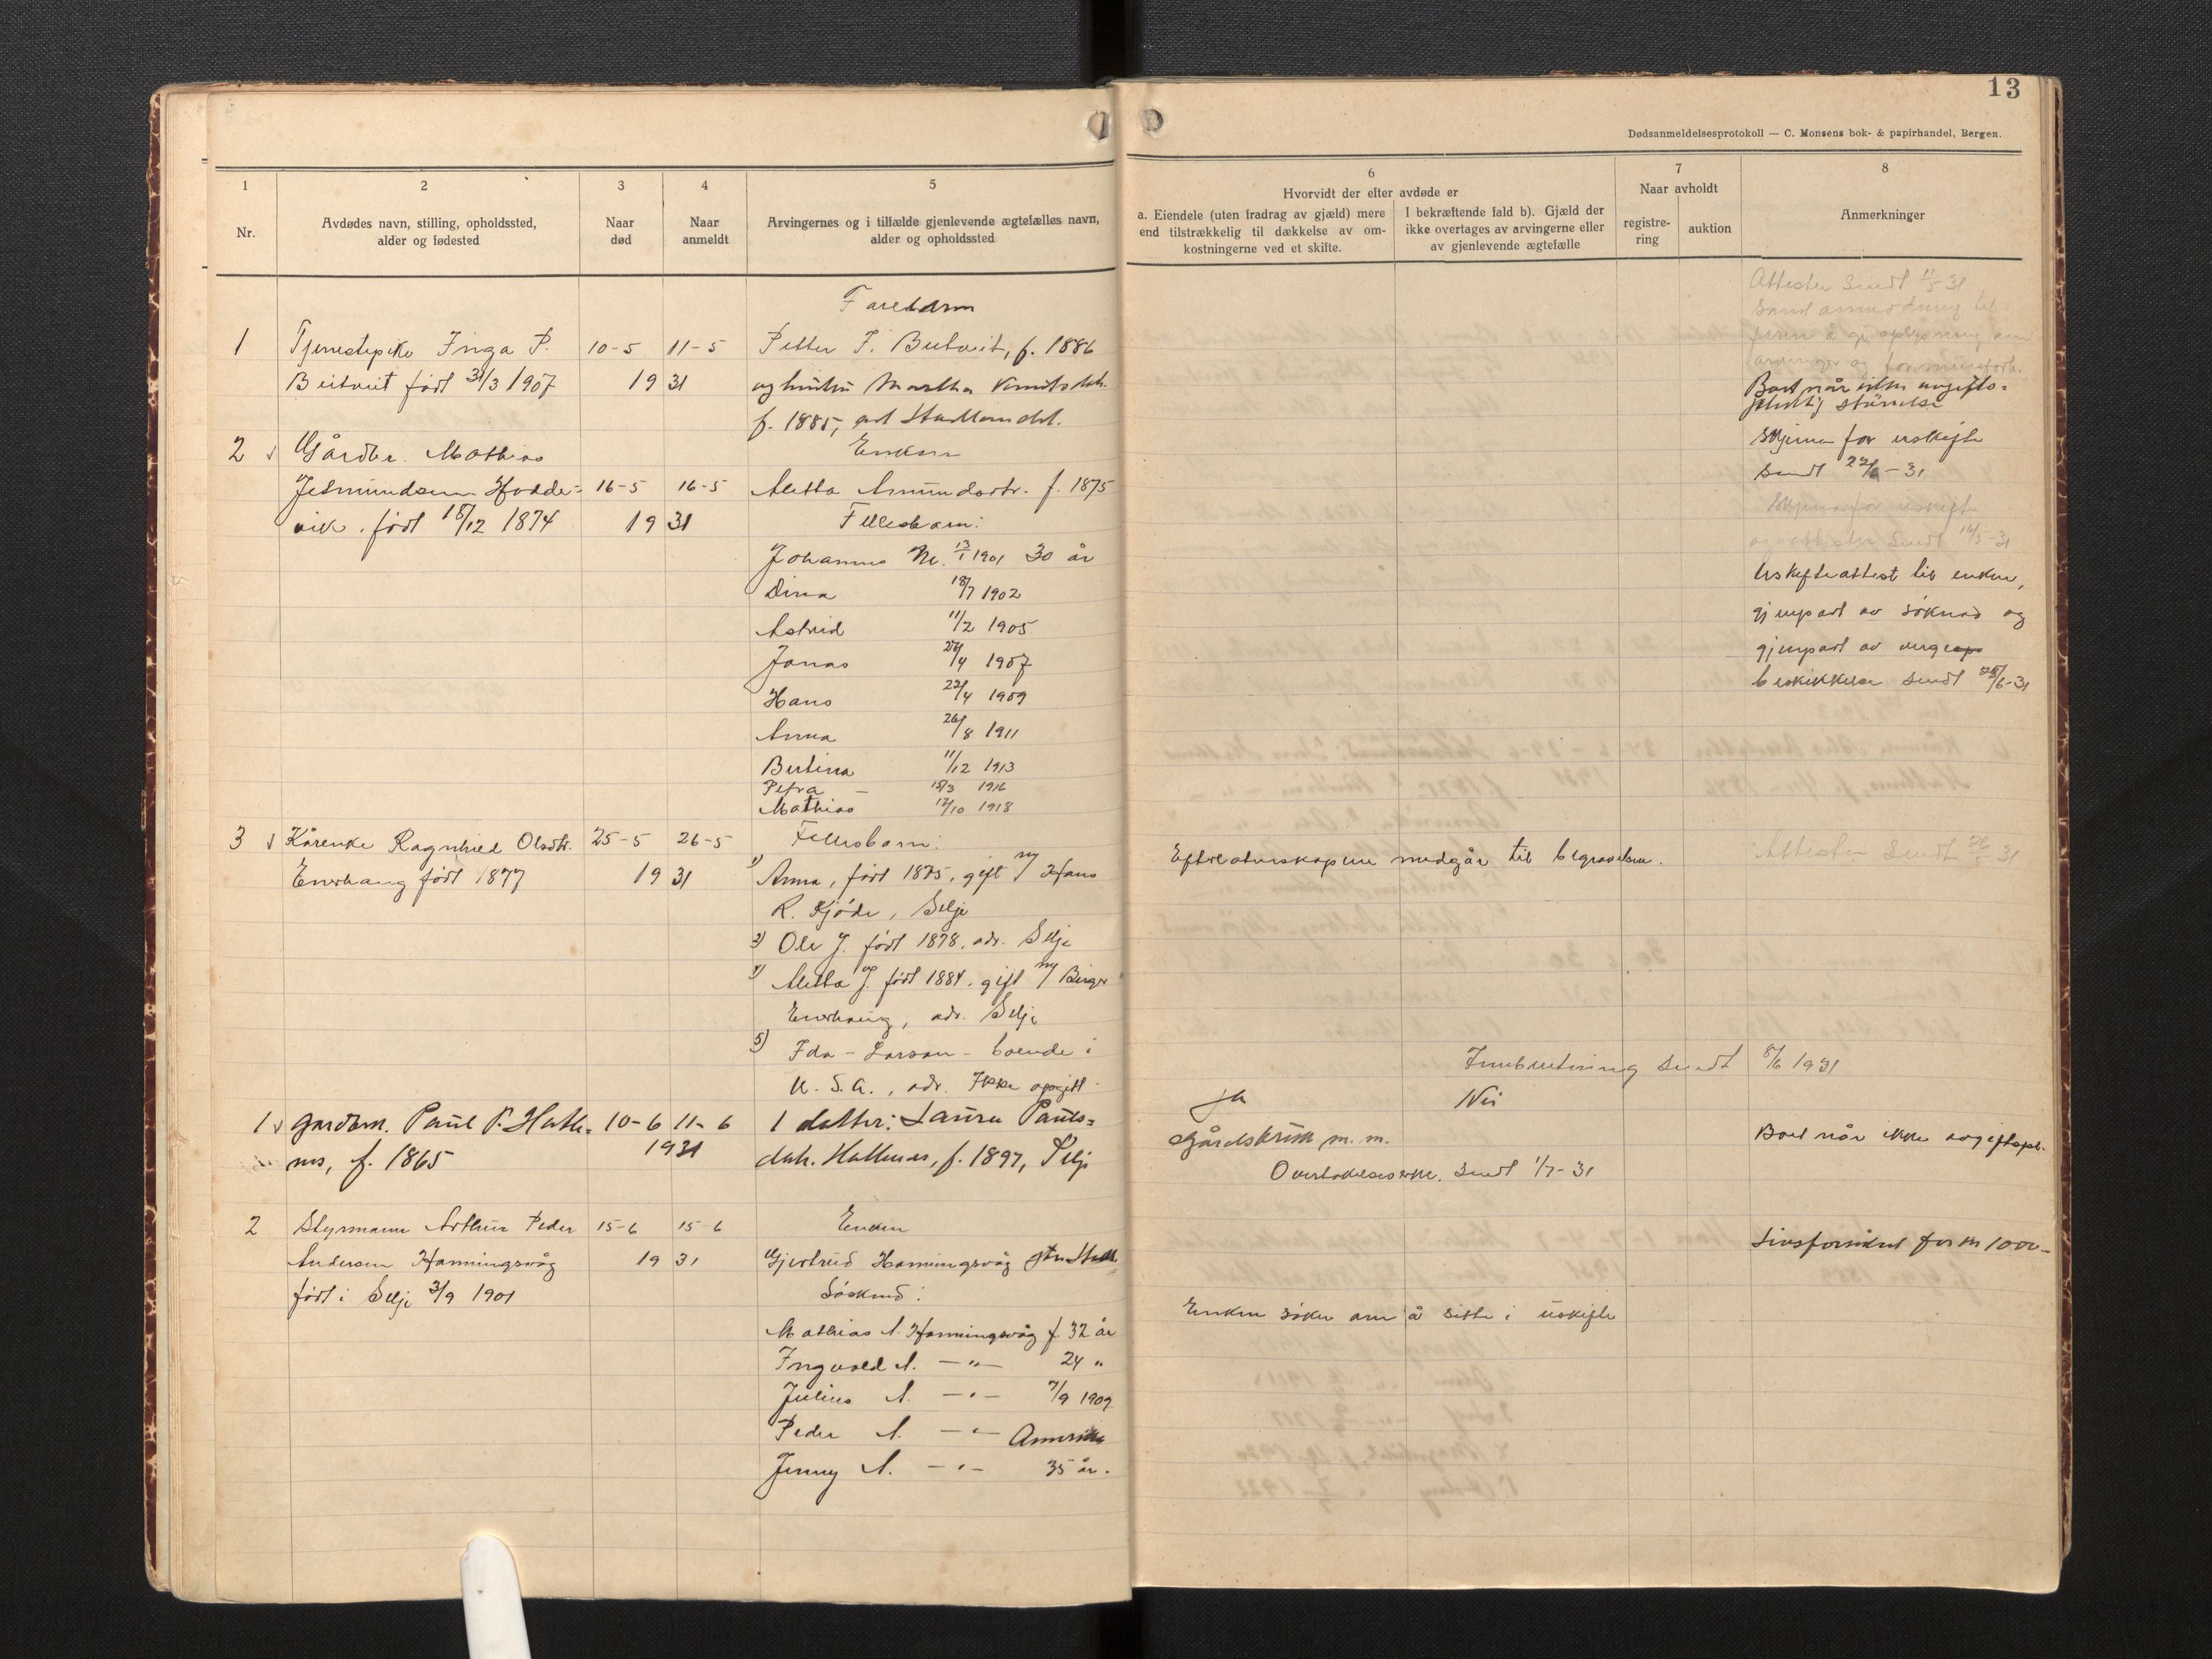 13
Dødsanmeldelsesprotokoll — C. Monsens bok- & papirhandel, Bergen.
1
Nr.
2
Avdødes navn, stilling, opholdssted,
alder og fødested
3
Naar
død
4
Naar
anmeldt
5
Arvingernes og i tilfælde gjenlevende ægtefælles navn,
alder og opholdssted
6
Hvorvidt der efter avdøde er
a. Eiendele (uten fradrag av gjæld) mere
end tilstrækkelig til dækkelse av om-
kostningerne ved et skifte.
I bekræftende fald b). Gjæld der
ikke overtages av arvingerne eller
av gjenlevende ægtefælle
7
Naar avholdt
registre-
ring
auktion
8
Anmerkninger
1
Tjenestepike Inga P.
født 31/3 1907
10-5 11-5
19 31
Petter J. f. 1886
og hustru Martha
f. 1885,
Attester sendt 11/5 31
Boet når
2
Gårdbr. Mathias
Jetmundsen Hodde-
vik. født 18/12 1874
16-5 16-5
19 31
Enken
Aletta Amundsdtr. f. 1875
Fellesbarn:
Johannes M. 13/1 1901 30 år
Dina 18/7 1902
Astrid 11/2 1905
Jonas 1907
Hans 22/4 1909
Anna 26/8 1911
Bertina 11/12 1913
Petra 1916
Mathias 1918
Skjema for uskifte
sendt - 31
Skjema for uskift
og attester sendt 16/5-31
Uskifteattest til enken,
gjenpart av søknad og
gjenpart av verge
beskikkelse sendt 6-31
3
Kårenke Ragnhild Olsdtr.
født 1877
25-5 26-5
19 31
Fellesbarn:
1) Anna, født 1875, gift m/ Hans
R. Kjøde, Selje
Ole J. født 1878. adr. Selje
Aletta J. født 1884. gift m/ Birger
adr. Selje
5) Ida - Larson - boende i
U.S.A., adr. Ikke opgitt
medgår til begravelsen.
Attester sendt 31
Innberetning sendt 8/6 1931
1
Gardbr. Paul P. Hatle-
nes, f. 1865
10-6 11-6
1931
1 datter: Laura Pauls-
dtr. Hatlenes, f. 1897, Selje
Ja
Nei
Gårdsbruk m. m.
sendt 1/7-31
Boet når ikke avgiftspl.
2
Styrmann Arthur Peder
Andersen Hamningsvåg
født i Selje 3/9 1901
15-6 15-6
19 31
Enken
Gjertrud Hamningsvåg
Søsken:
Mathias A. Hamningsvåg f. 32 år
Ingvald A. — " — 24 "
Julius A. — " — 7/9 1909
Peder A. — " — Amerika
Jenny A. — " — 35 år.
Enken søker om å sitte i uskifte
Livsforsikret for kr 1000-